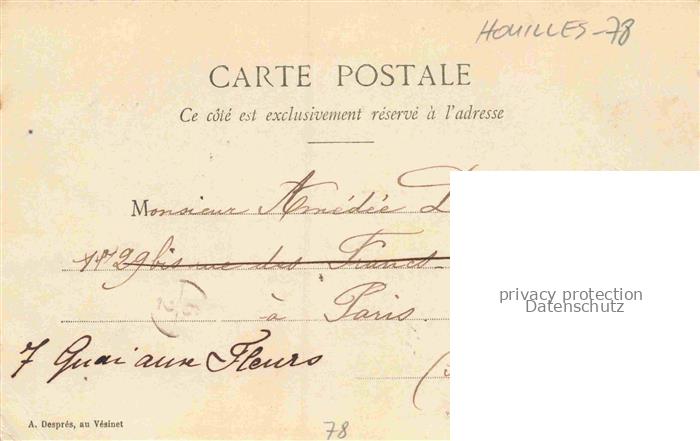 HOUILLES-78
CARTE POSTALE
Ce côté est exclusivement réservé à l'adresse
Monsieur Amédée
29bis rue des Francs-
à Paris.
7 Quai aux Fleurs
privacy protection
Datenschutz
A. Després, au Vésinet
78